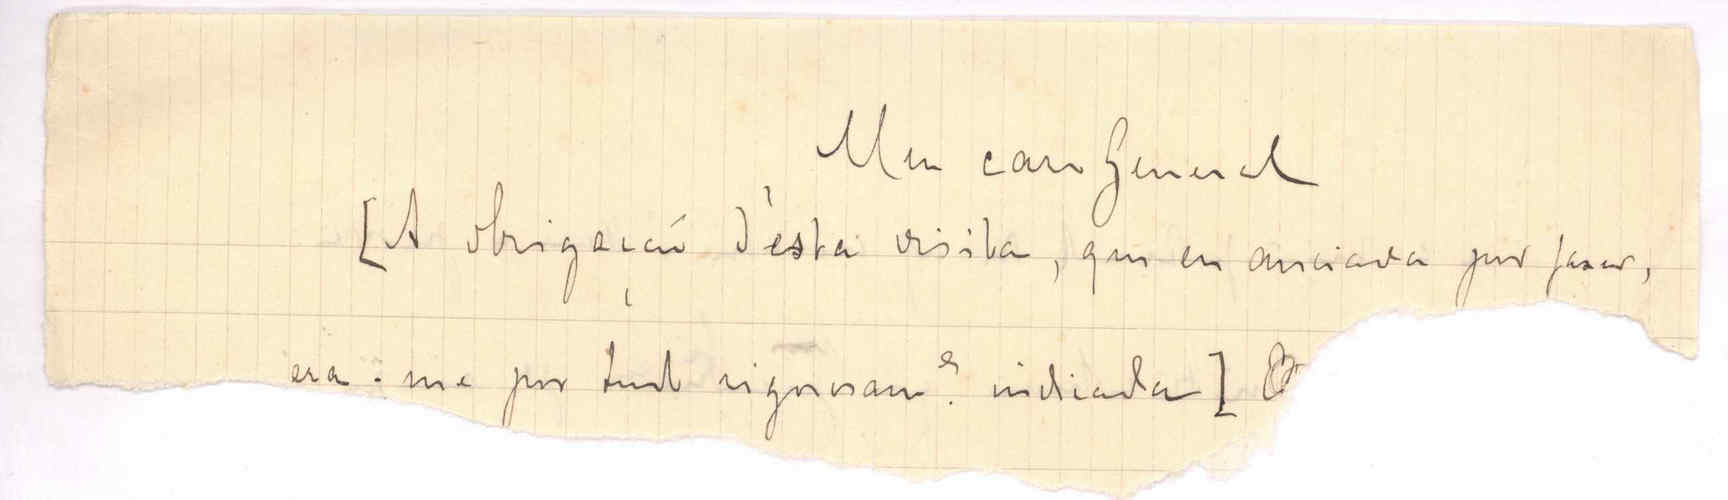 Meu caro General
[A obrigação d'esta visita, que eu anciava por fazer,
era-me por tudo rigorosam.e indicada]